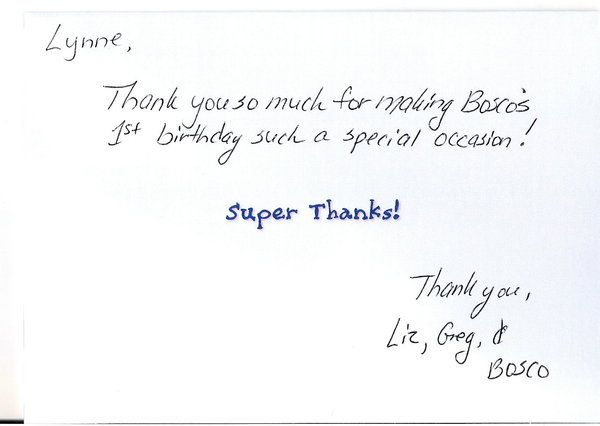 Lynne,
Thank you so much for making Bosco's
1st birthday such a special occasion!
Super Thanks!
Thank you,
Liz, Greg, &
Bosco